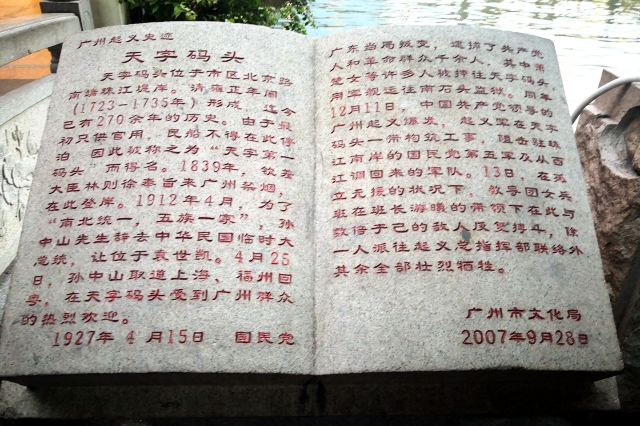 广州起义史迹
天字码头
天字码头位于市区北京路
南端珠江堤岸。清雍正年间
(1723-1735年)形成，迄今
已有270余年的历史。由于最
初只供官用，民船不得在此停
泊，因此被称之为“天字第一
码头”而得名。1839年，钦差
大臣林则徐奉旨来广州禁烟，
在此登岸。1912年4月，为了
“南北统一，五族一家”，孙
中山先生辞去中华民国临时大
总统，让位于袁世凯。4月25
日，孙中山取道上海、福州回
粤，在天字码头受到广州群众
的热烈欢迎。
1927年4月15日 国民党
广东当局叛变，逮捕了共产党
人和革命群众千余人，其中萧
楚女等许多人被押往天字码头，
用军舰运往南石头监狱。同年
12月11日，中国共产党领导的
广州起义爆发，起义军在天字
码头一带构筑工事，阻击驻珠
江南岸的国民党第五军及从西
江调回来的军队。13日，在孤
立无援的状况下，教导团女兵
班在班长游曦的带领下在此与
数倍于己的敌人反复搏斗，除
一人派往起义总指挥部联络外
其余全部壮烈牺牲。
广州市文化局
2007年9月28日